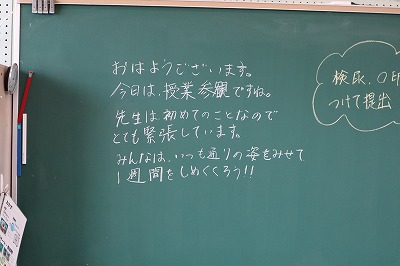 おはようございます。
今日は、授業参観ですね。
先生は初めてのことなので
とても緊張しています。
みんなは、いつも通りの姿をみせて
1週間をしめくくろう!!
検尿、〇印
つけて提出